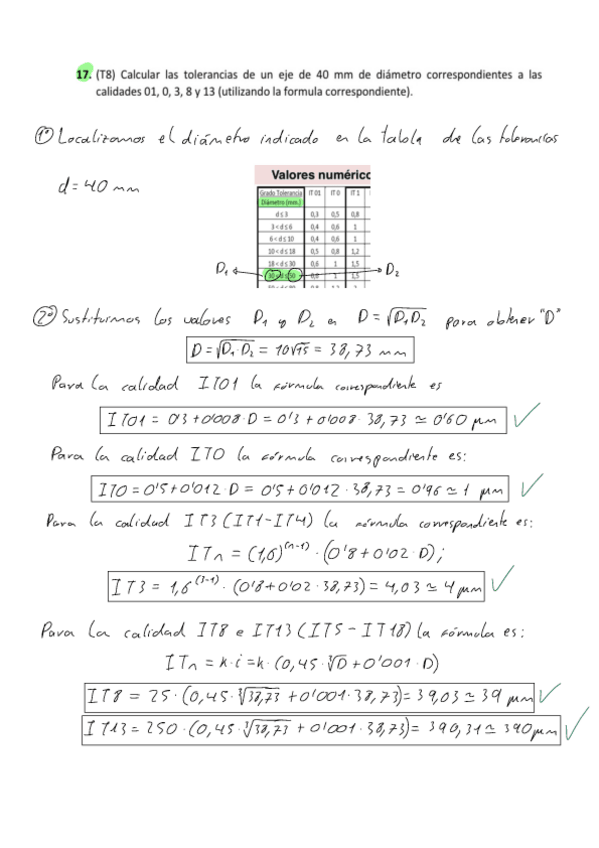 17. (T8) Calcular las tolerancias de un eje de 40 mm de diámetro correspondientes a las
calidades 01, 0, 3, 8 y 13 (utilizando la formula correspondiente).
1º Localizamos el diámetro indicado en la tabla de las tolerancias
d = 40 mm
Valores numéric
Grado Tolerancia IT 01 IT 0 IT 1
Diámetro (mm.)
d ≤ 3 0,3 0,5 0,8
3 < d ≤ 6 0,4 0,6 1
6 < d ≤ 10 0,4 0,6 1
10 < d ≤ 18 0,5 0,8 1,2
18 < d ≤ 30 0,6 1 1,5
D₁ 30 < d ≤ 50 1 1,5 D₂
2º Sustituimos los valores D₁ y D₂ en D = √D₁D₂ para obtener "D"
D = √D₁·D₂ = 10√15 = 38,73 mm
Para la calidad IT01 la fórmula correspondiente es
IT01 = 0'3 + 0'008·D = 0'3 + 0'008·38,73 ≃ 0'60 μm
Para la calidad IT0 la fórmula correspondiente es:
IT0 = 0'5 + 0'012·D = 0'5 + 0'012·38,73 = 0'96 ≃ 1 μm
Para la calidad IT3 (IT1-IT4) la fórmula correspondiente es:
ITn = (1,6)⁽ⁿ⁻¹⁾ · (0'8 + 0'02·D);
IT3 = 1,6⁽³⁻¹⁾ · (0'8 + 0'02·38,73) = 4,03 ≃ 4 μm
Para la calidad IT8 e IT13 (IT5 - IT18) la fórmula es:
ITn = k·i = k·(0,45·∛D + 0'001·D)
IT8 = 25·(0,45·∛38,73 + 0'001·38,73) = 39,03 ≃ 39 μm
IT13 = 250·(0,45·∛38,73 + 0'001·38,73) = 390,31 ≃ 390 μm